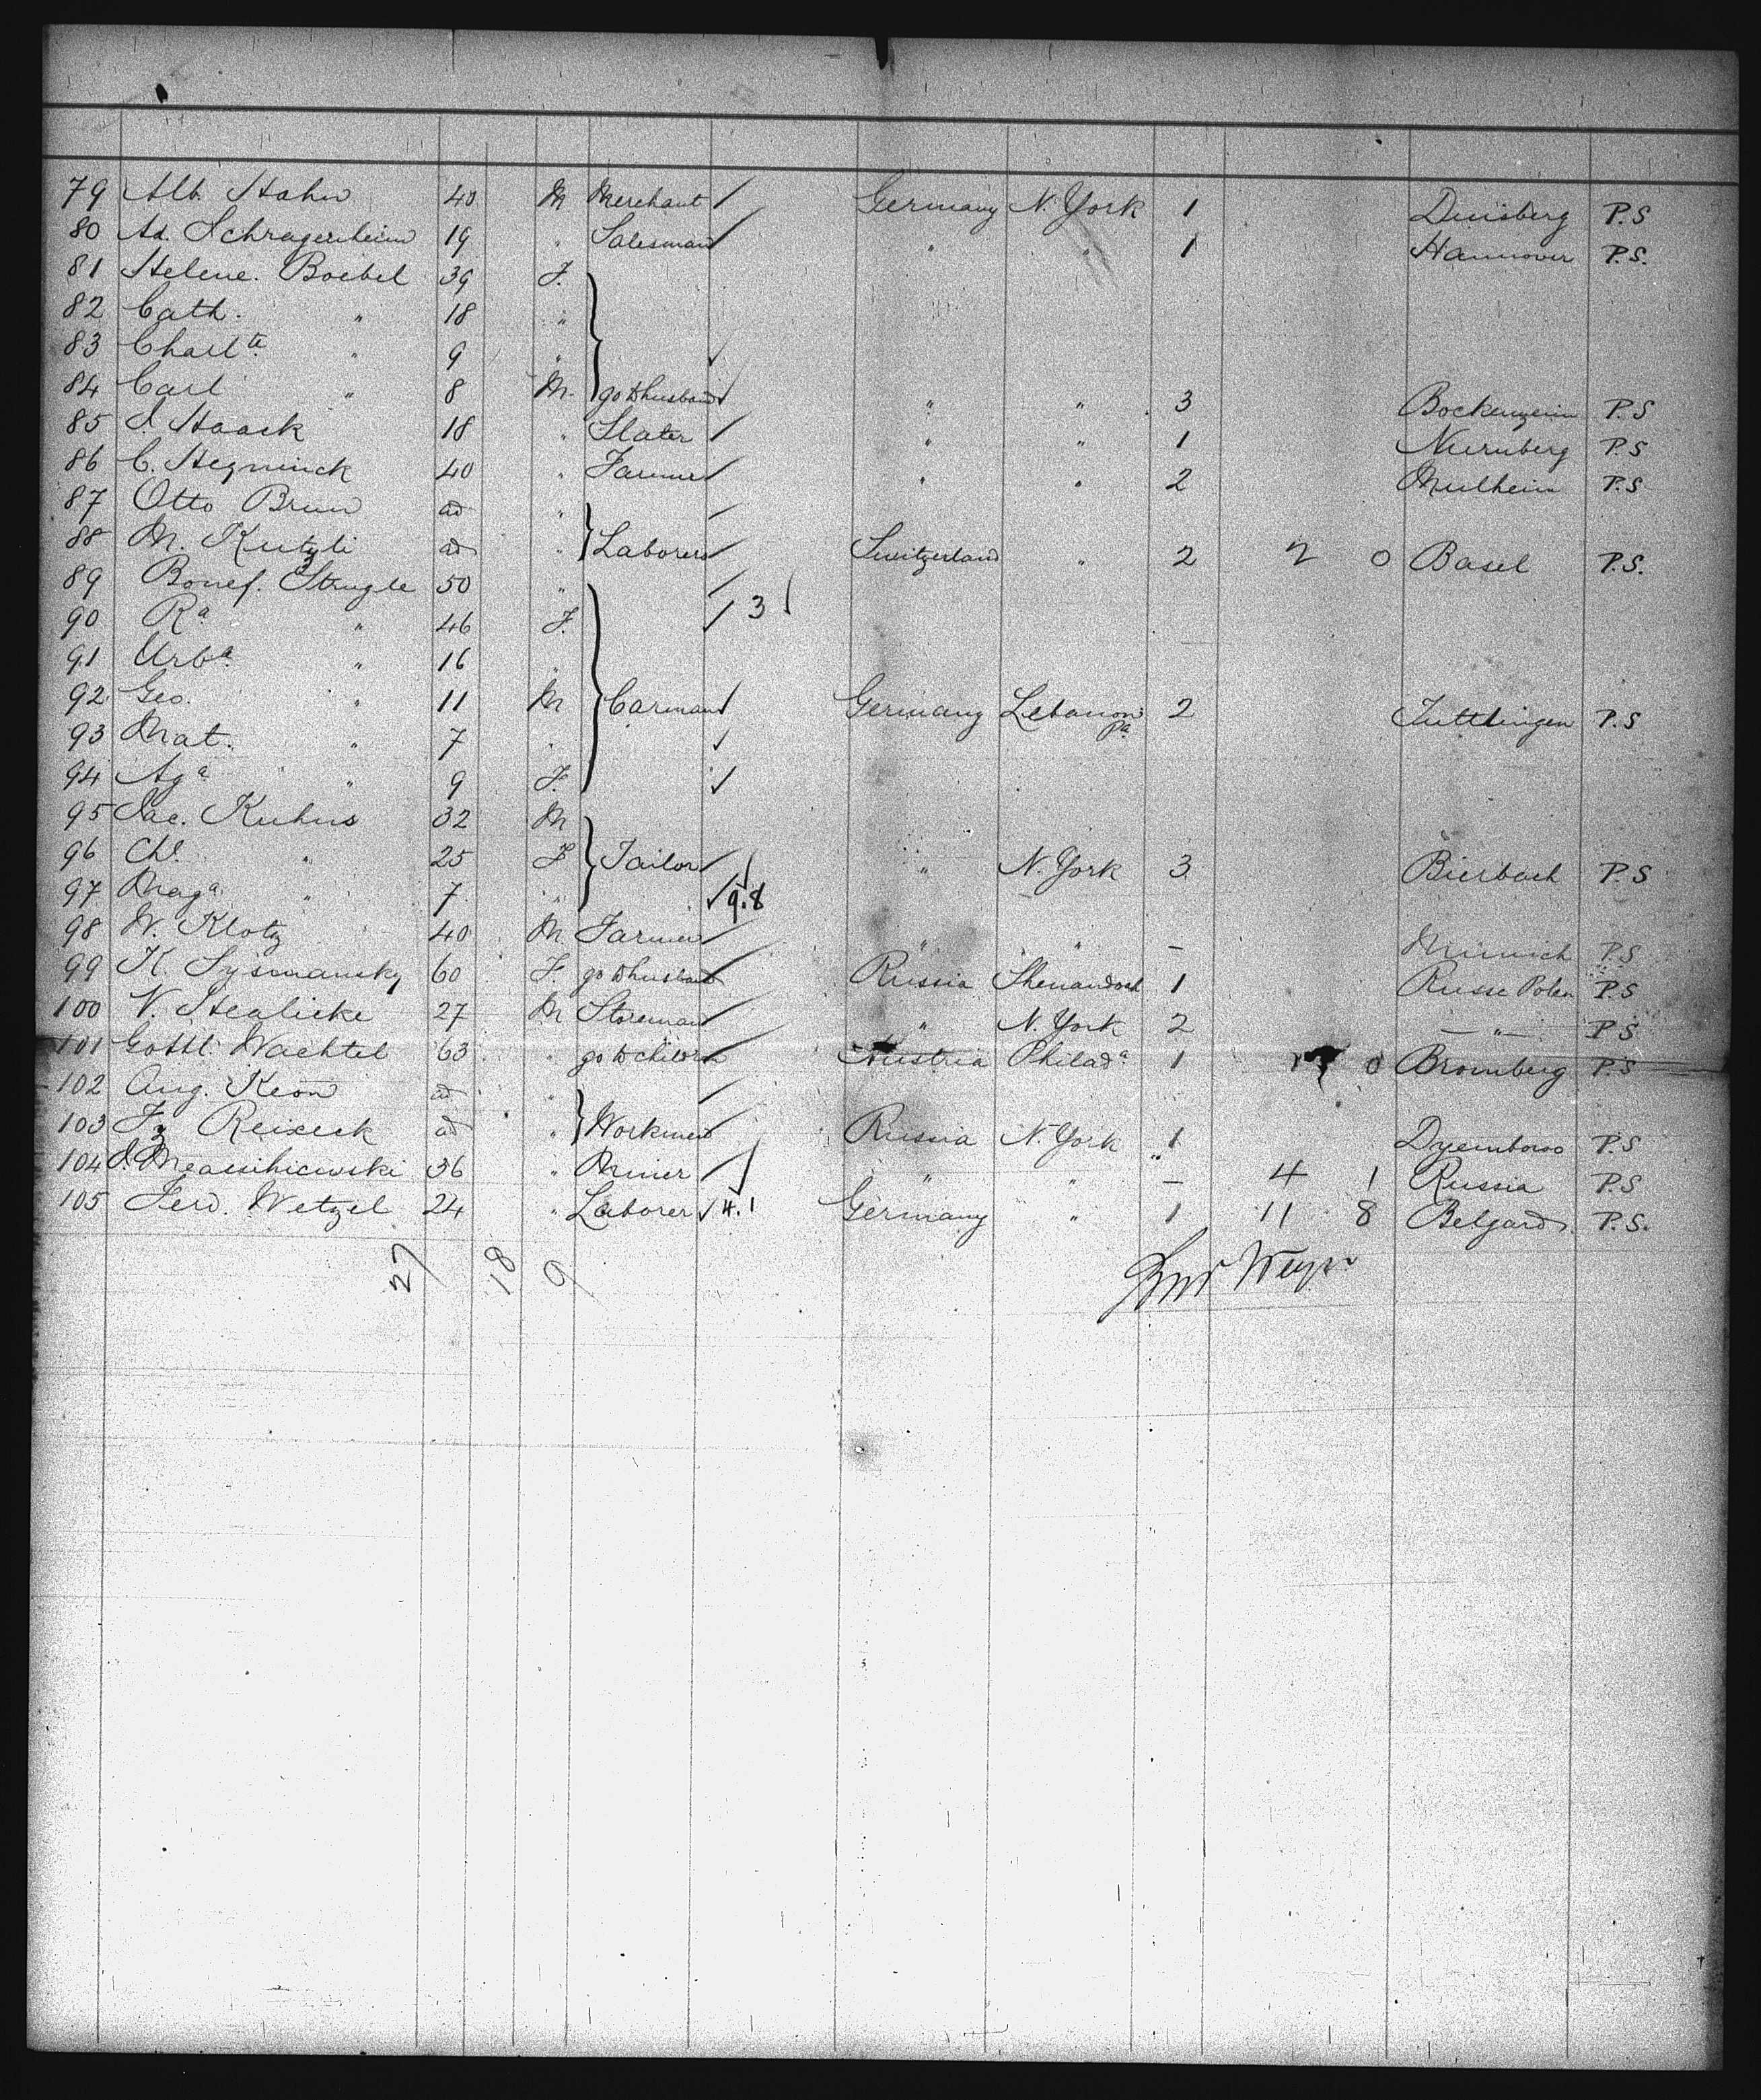 79 Alb. Hahn 40 M Merchant Germany N. York 1 Duisberg P.S
80 Ad. Schragenheim 19 " Salesman " " 1 Hannover P.S.
81 Helene. Boebel 39 F.
82 Cath. " 18 "
83 Charlte " 9 "
84 Carl " 8 M. go to husband " " 3 P.S
85 J. Haack 18 " Slater " " 1 Nurnberg P.S
86 C. Hegminck 40 " Farmer " " 2 Mulheim P.S
87 Otto Brun ad "
88 M. Kutzli ad " Laborers Switzerland " 2 2 0 Basel P.S.
89 Bonef. Stengle 50 "
90 Ra " 46 F. 3
91 Urba " 16 "
92 Geo. " 11 M Carman Germany Lebanon Pa 2 Tuttlingen P.S
93 Mat. " 7 "
94 Aga " 9 F.
95 Jac. Kuhns 32 M
96 Ch. " 25 F Tailor " N. York 3 Bierbach P.S
97 Maga " 7 " 9.8
98 W. Klotz 40 M. Farmer " " - Munich P.S
99 K. Sysmansky 60 F. go to husband Russia Shenandoah 1 Russe Polen P.S
100 V. Healicke 27 M Storeman " N. York 2 -"- P.S
101 Gottl. Wachtel 63 " go to children Austria Philada 1 0 Bromberg P.S
102 Aug. Keon ad "
103 Fz Reixeck ad " Workmen Russia N. York 1 P.S
104 J. 36 " Miner " " - 4 1 Russia P.S
105 Ferd. Wetzel 24 " Laborer 4.1 Germany " 1 11 8 Belgard. P.S.
27 18 9